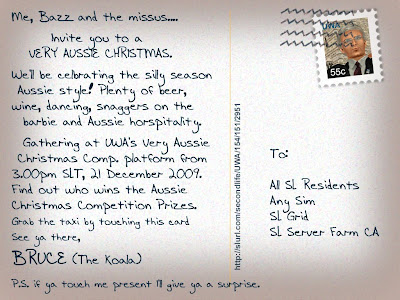 Me, Bazz and the missus....
Invite you to a
VERY AUSSIE CHRISTMAS.
We'll be celbrating the silly season
Aussie style! Plenty of beer,
wine, dancing, snaggers on the
barbie and Aussie horspitality.
Gathering at UWA's Very Aussie
Christmas Comp. platform from
3.00pm SLT, 21 December 2009.
Find out who wins the Aussie
Christmas Competition Prizes.
Grab the taxi by touching this card
See ya there,
BRUCE (The Koala)
P.S. if ya touch me present I'll give ya a surprise.
http://slurl.com/secondlife/UWA/154/151/2951
UWA
55c
To:
All SL Residents
Any Sim
SL Grid
SL Server Farm CA